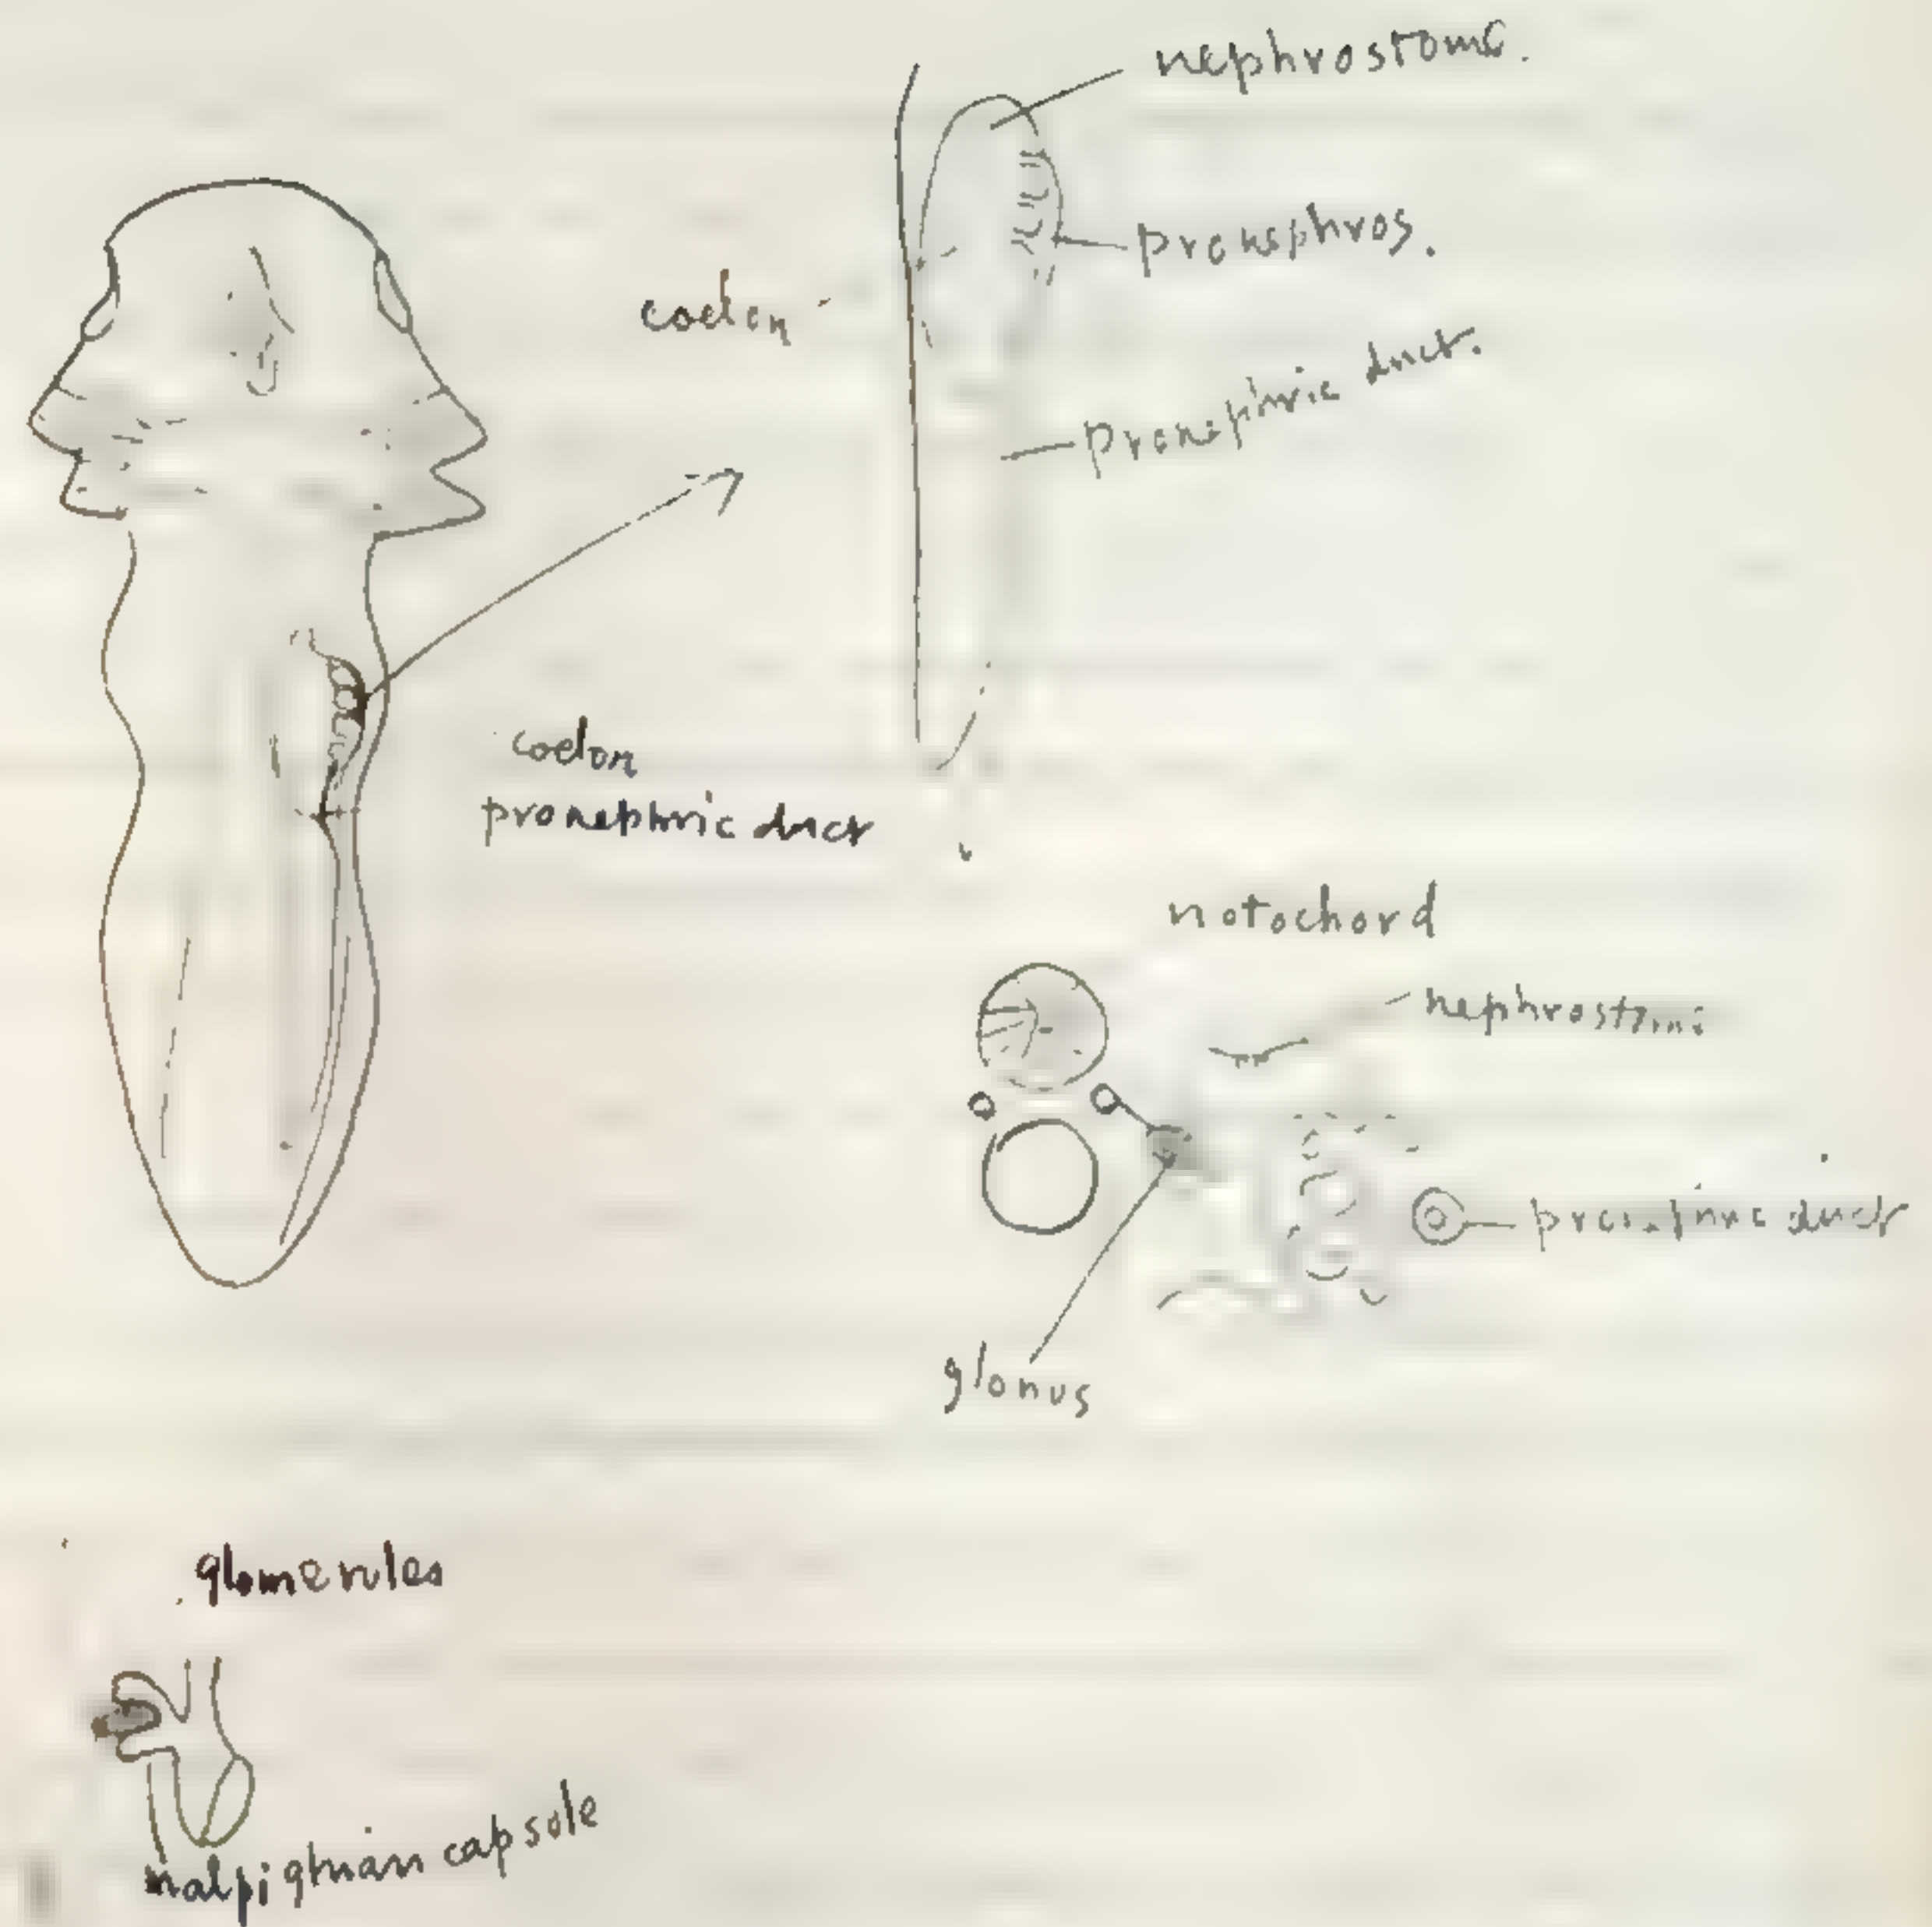 nephrostome.
pronephros.
coelon
pronephric duct.
coelon
pronephric duct
notochord
nephrostome
duct
glonus
glomerules
malpighian capsole